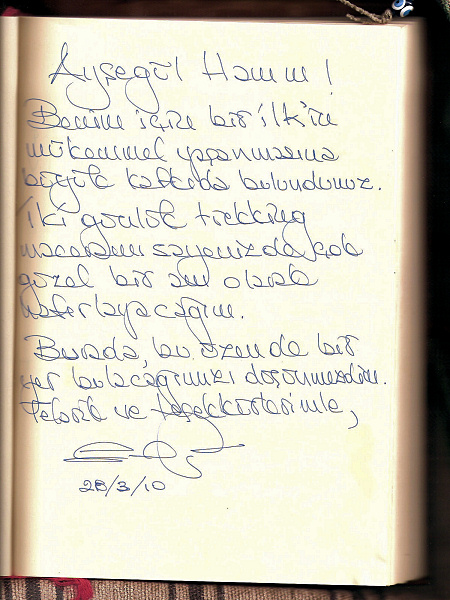 Ayşegül Hanım!
Benim için bir ilk'in
mükemmel yaşanmasına
büyük katkıda bulundunuz.
İki günlük trekking
maceramı sayenizde çok
güzel bir anı olarak
hatırlayacağım.
Burada, bu özende bir
yer bulacağımızı düşünmezdim.
Tebrik ve teşekkürlerimle,
28/3/10